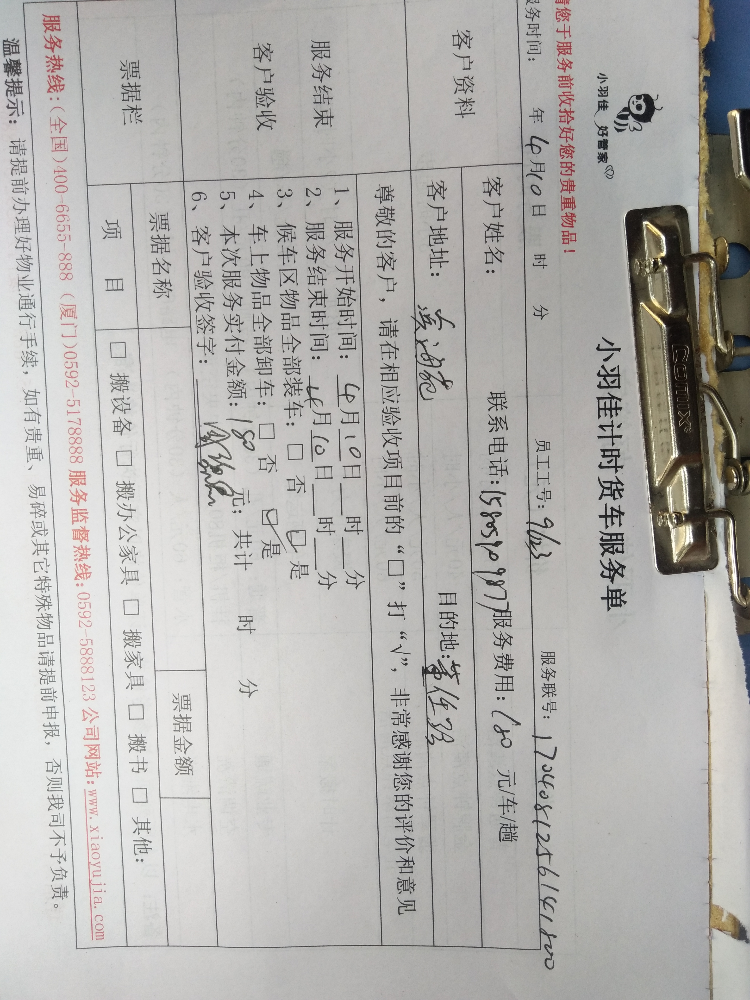 小羽佳 好管家
comix
小羽佳计时货车服务单
您于服务前收拾好您的贵重物品！
务时间： 年 4月10日 时 分 员工工号： 服务联号：
客户资料 客户姓名： 联系电话： 服务费用：180 元/车/趟
客户地址： 目的地：
尊敬的客户，请在相应验收项目前的“□”打“√”，非常感谢您的评价和意见
服务结束
客户验收
1、服务开始时间：4月10日__时__分
2、服务结束时间：4月10日__时__分
3、候车区物品全部装车：□ 否 ☑ 是
4、车上物品全部卸车：□ 否 ☑ 是
5、本次服务实付金额：180 元；共计 时 分
6、客户验收签字：
票据栏 票据名称 票据金额
项 目 □ 搬设备 □ 搬办公家具 □ 搬家具 □ 搬书 □ 其他：
服务热线：（全国）400-6655-888（厦门）0592-5178888 服务监督热线：0592-5888123 公司网站：www.xiaoyujia.com
温馨提示：请提前办理好物业通行手续，如有贵重、易碎或其它特殊物品请提前申报，否则我司不予负责。